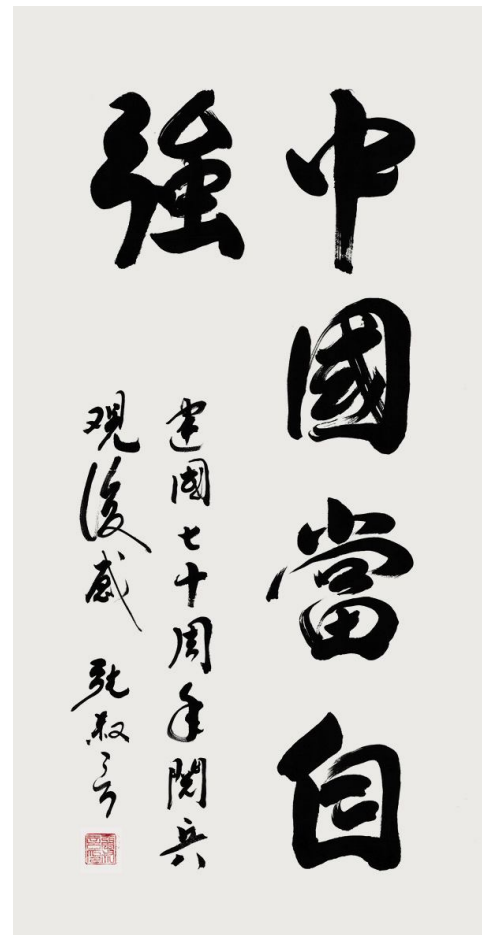 中國當自
強
建國七十周年閱兵
观後感 張叔